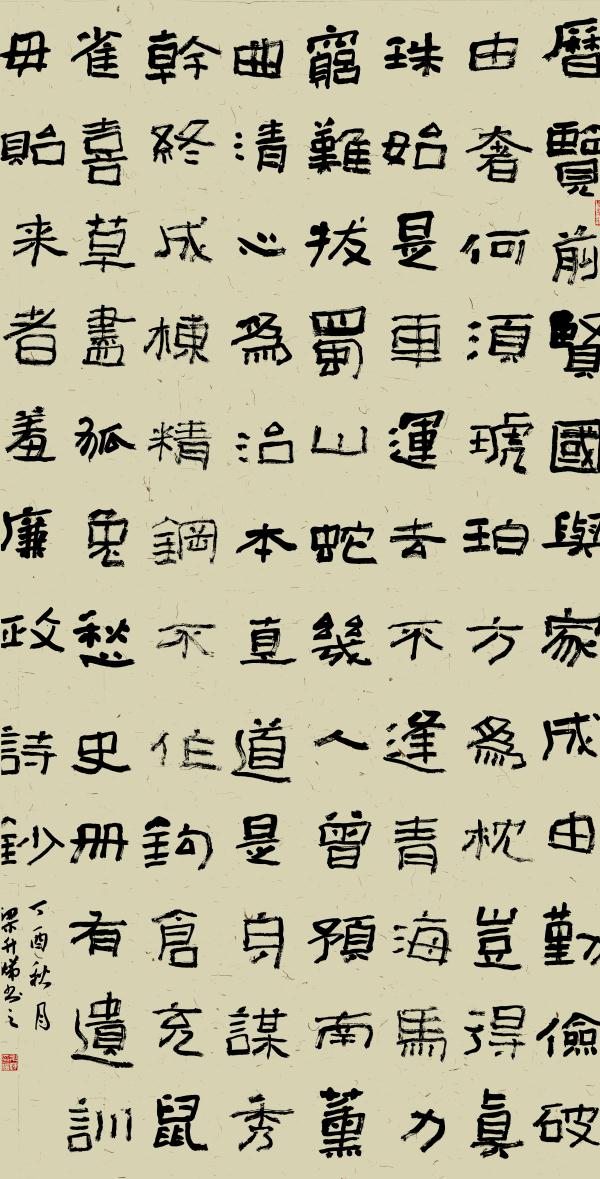 曆覽前賢國與家成由勤儉破
由奢何須琥珀方爲枕豈得真
珠始是車運去不逢青海馬力
窮難拔蜀山蛇幾人曾預南薰
曲清心爲治本直道是身謀秀
幹終成棟精鋼不作鉤倉充鼠
雀喜草盡狐兔愁史册有遺訓
毋貽来者羞廉政詩鈔
丁酉秋月
梁升书之